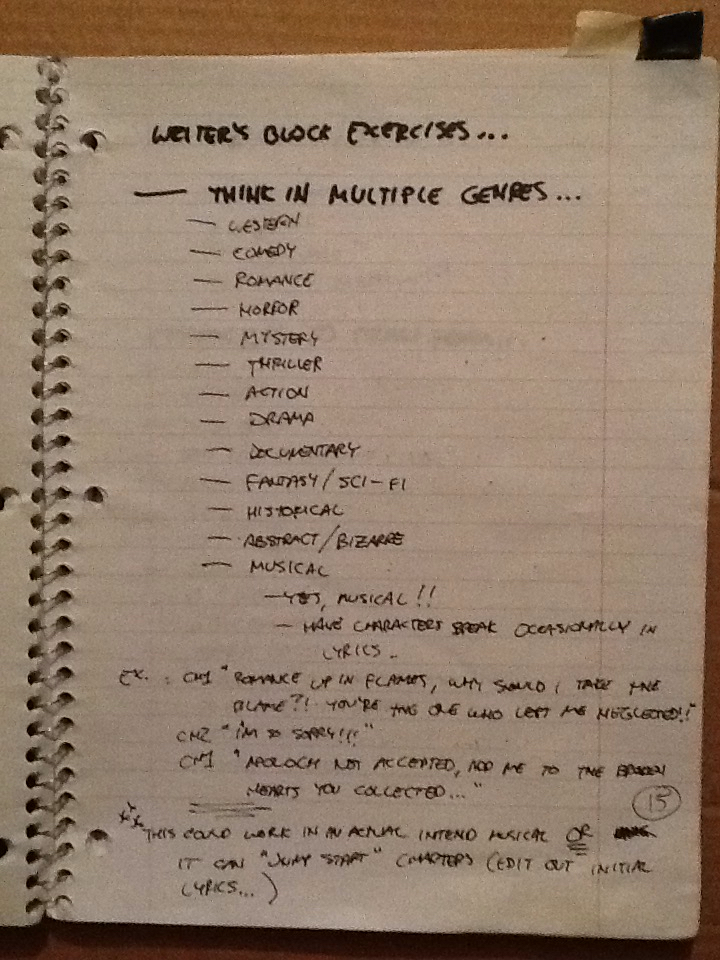 WRITER'S BLOCK EXERCISES...
— THINK IN MULTIPLE GENRES...
— WESTERN
— COMEDY
— ROMANCE
— HORROR
— MYSTERY
— THRILLER
— ACTION
— DRAMA
— DOCUMENTARY
— FANTASY/SCI-FI
— HISTORICAL
— ABSTRACT/BIZARRE
— MUSICAL
— YES, MUSICAL!!
— HAVE CHARACTERS SPEAK OCCASIONALLY IN
LYRICS..
EX. : CH1 "ROMANCE UP IN FLAMES, WHY SHOULD I TAKE THE
BLAME?! YOU'RE THE ONE WHO LEFT ME NEGLECTED!!"
CH2 "I'M SO SORRY!!!"
CH1 "APOLOGY NOT ACCEPTED, ADD ME TO THE BROKEN
HEARTS YOU COLLECTED..."
15
THIS COULD WORK IN AN ACTUAL INTEND MUSICAL OR
IT CAN "JUMP START" CHAPTERS (EDIT OUT INITIAL
LYRICS...)